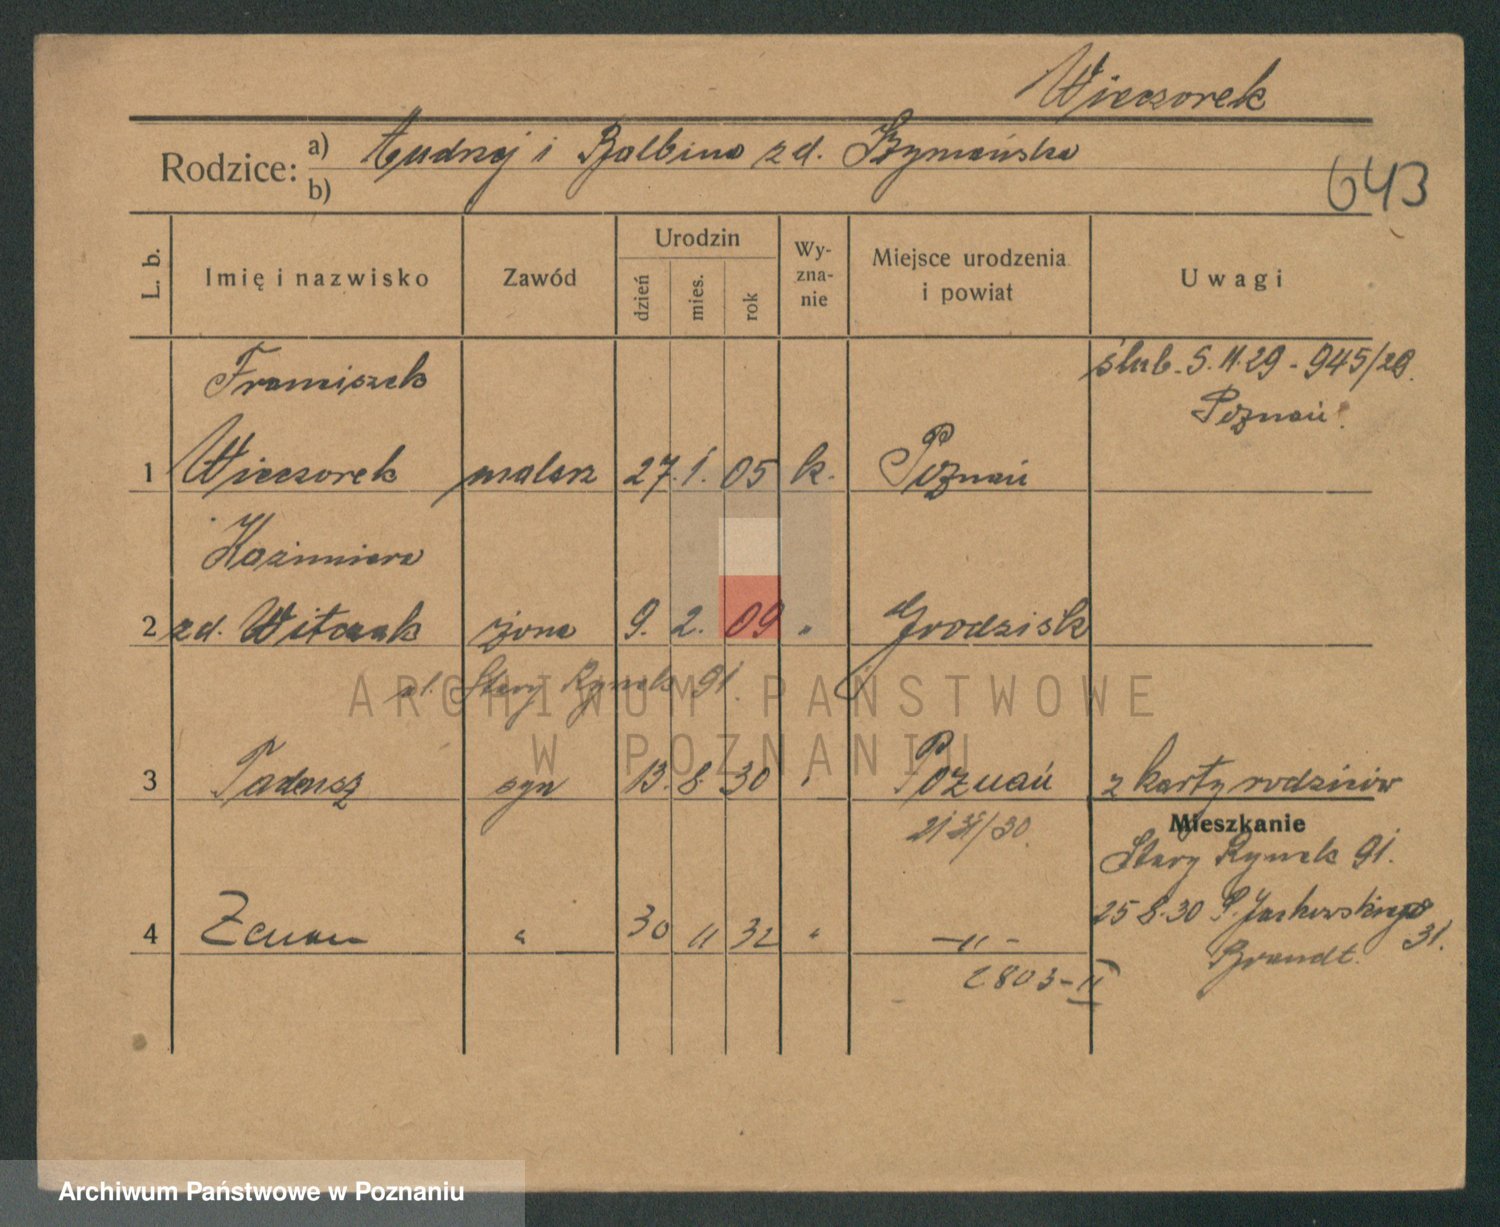 Wieczorek
Rodzice: a) Andrzej i Balbina z d. Szymańska
b)
643
L. b. Imię i nazwisko Zawód Urodzin dzień mies. rok Wy-zna-nie Miejsce urodzenia i powiat Uwagi
Franciszek ślub. 5.11.29 - 945/29.
Poznań.
1 Wieczorek malarz 27. 1. 05 k. Poznań
Kazimiera
2 z d. Witczak żona 9. 2. 09 " Grodzisk
ul. Stary Rynek 91.
3 Tadeusz syn 13. 8. 30 " Poznań z karty rodziców
Mieszkanie
Stary Rynek 91.
25 8.30
4 Zenon " 30 11 32 " -"-
31.
Brandt.
2803-II
ARCHIWUM PAŃSTWOWE
W POZNANIU
Archiwum Państwowe w Poznaniu